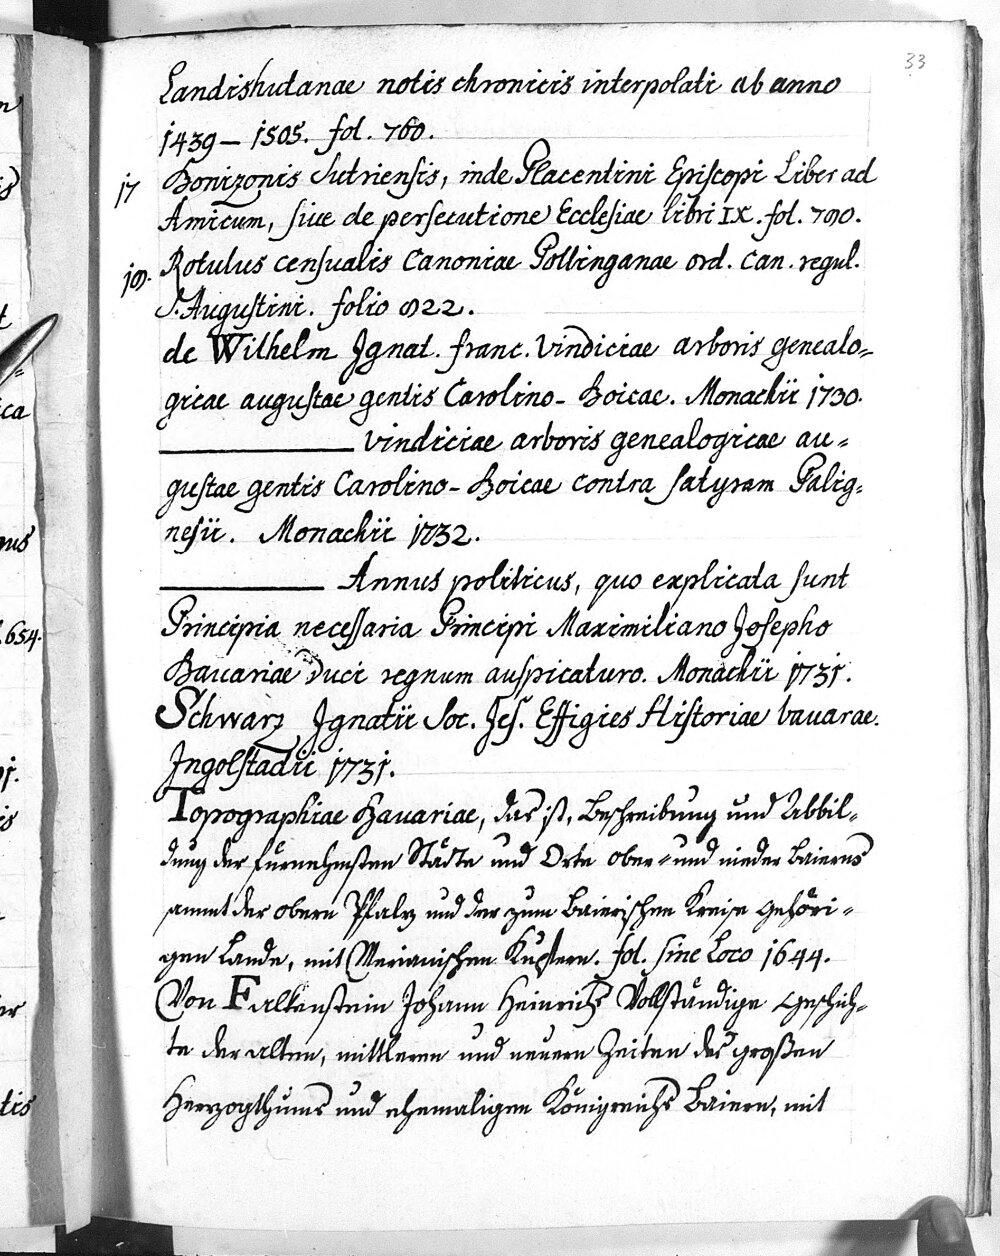 33
Landishutanae notis chronicis interpolati ab anno
1439 – 1505. fol. 760.
17 Bonizonis Sutriensis, inde Placentini Episcopi Liber ad
Amicum, sive de persecutione Ecclesiae libri IX. fol. 790.
18. Rotulus censualis Canoniae Pollinganae ord. can. regul.
S. Augustini. folio 822.
de Wilhelm Ignat. franc. Vindiciae arboris genealo=
gicae augustae gentis Carolino- Boicae. Monachii 1730.
vindiciae arboris genealogicae au=
gustae gentis Carolino- Boicae contra satyram Palig=
nesii. Monachii 1732.
Annus politicus, quo explicata sunt
Principia necessaria Principi Maximiliano Josepho
Bavariae Duci regnum auspicaturo. Monachii 1731.
Schwarz Ignatii Soc. Jes. Effigies Historiae bavarae.
Ingolstadii 1731.
Topographiae Bavariae, das ist, Beschreibung und Abbil=
dung der fürnehmsten Städte und Orte ober= und nieder Baierns
sammt der obern Pfalz und der zum Baierischen Kreise gehöri=
gen Lande, mit Merianischen Kupfern. fol. sine Loco 1644.
Von Falkenstein Johann Heinrichs Vollständige Geschich=
te der alten, mittleren und neuern Zeiten des großen
Herzogthums und ehemaligen Königreichs Baiern, mit
654.